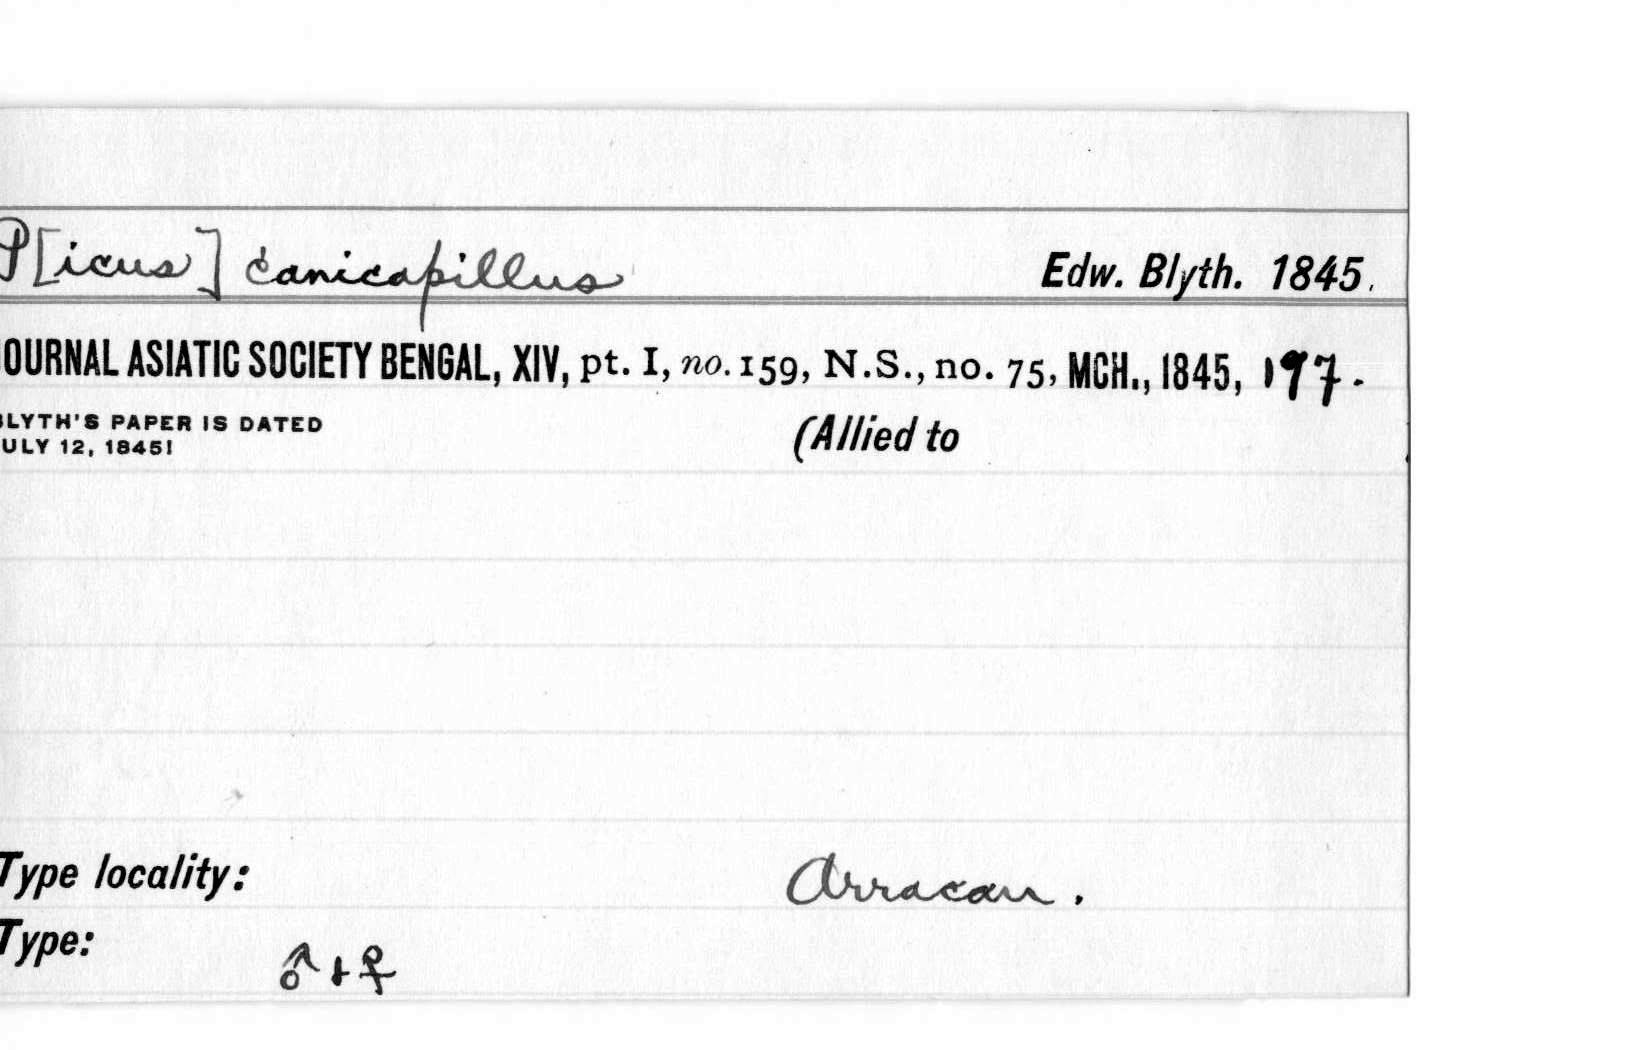 P[icus] canicapillus Edw. Blyth. 1845.
JOURNAL ASIATIC SOCIETY BENGAL, XIV, pt. I, no. 159, N.S., no. 75, MCH., 1845, 197.
BLYTH'S PAPER IS DATED
JULY 12, 1845!
(Allied to
Type locality: Arracan.
Type:
♂ + ♀